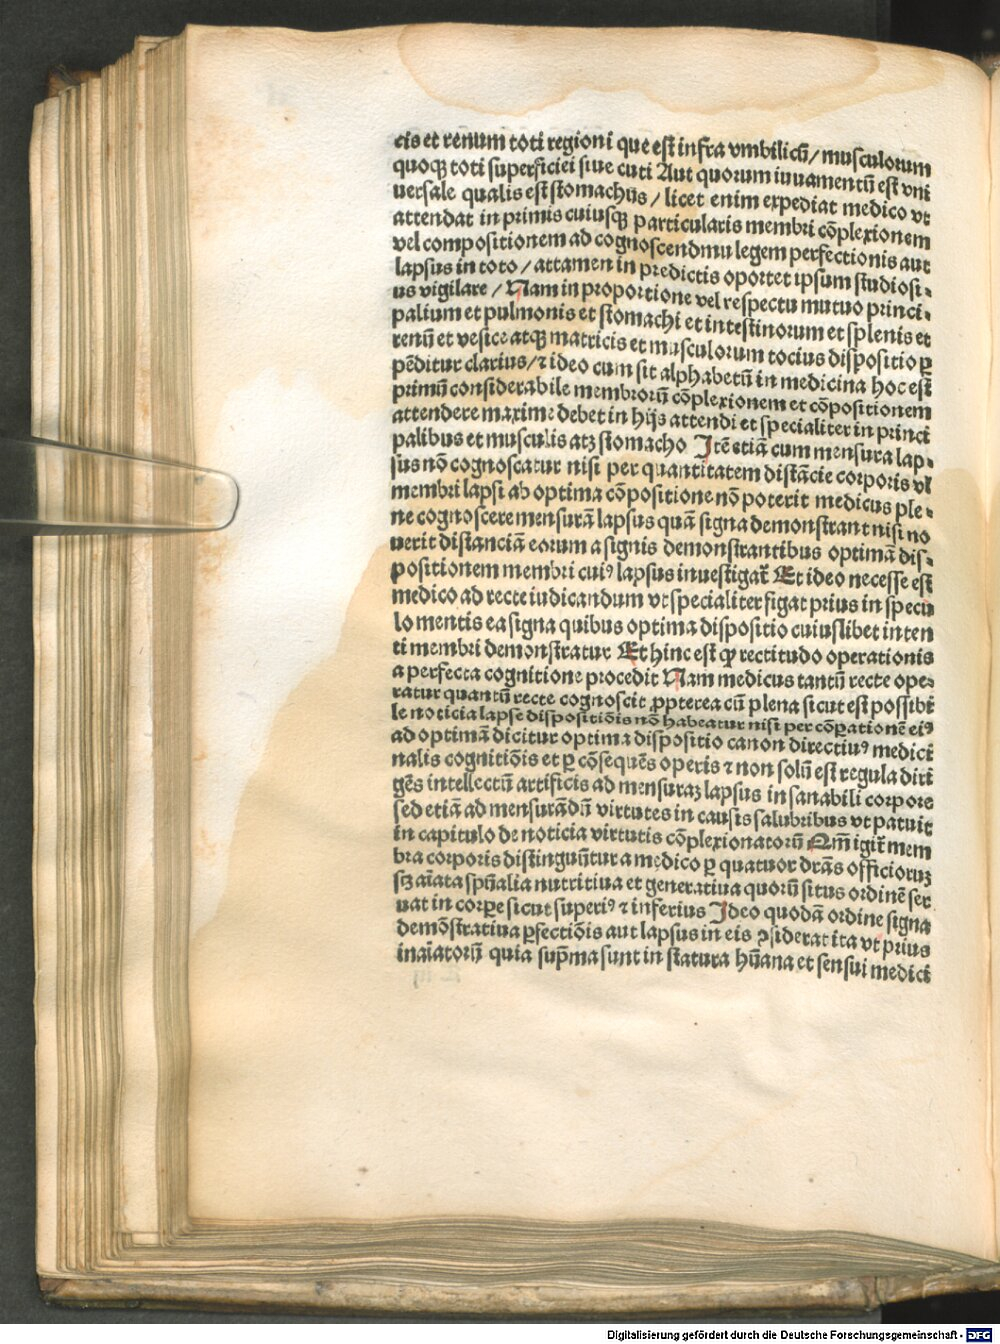 cis et renum toti regioni que est infra vmbilicū / musculorum
quoqꝫ toti superficiei siue cuti Aut quorum iuuamentū est vni
uersale qualis est stomachus / licet enim expediat medico vt
attendat in primis cuiusqꝫ particularis membri cōplexionem
vel compositionem ad cognoscendmu legem perfectionis aut
lapsus in toto / attamen in predictis oportet ipsum studiosi⸗
us vigilare / Nam in proportione vel respectu mutuo princi⸗
palium et pulmonis et stomachi et intestinorum et splenis et
renū et vesice atqꝫ matricis et musculorum tocius dispositio ꝑ
pēditur clarius / ⁊ ideo cum sit alphabetū in medicina hoc est
primū considerabile membrorū cōplexionem et cōpositionem
attendere maxime debet in hijs attendi et specialiter in princi
palibus et musculis atꝫ stomacho Itē etiā cum mensura lap⸗
sus nō cognoscatur nisi per quantitatem distācie corporis vl̄
membri lapsi ab optima cōpositione nō poterit medicus ple⸗
ne cognoscere mensurā lapsus quā signa demonstrant nisi no
uerit distanciā eorum a signis demonstrantibus optimā dis⸗
positionem membri cuiꝰ lapsus inuestigat̄ Et ideo necesse est
medico ad recte iudicandum vt specialiter figat prius in specu
lo mentis ea signa quibus optima dispositio cuiuslibet inten
ti membri demonstratur Et hinc est ꝙ rectitudo operationis
a perfecta cognitione procedit Nam medicus tantū recte ope⸗
ratur quantū recte cognoscit ꝓpterea cū plena sicut est possibi
le noticia lapse dispositiōis nō habeatur nisi per cōꝑationē eiꝰ
ad optimā dicitur optima dispositio canon directiuꝰ medici
nalis cognitiōis et ꝑ cōsequēs operis ⁊ non solū est regula diri
gēs intellectū artificis ad mensuraꝫ lapsus in sanabili corpore
sed etiā ad mensurādū virtutes in causis salubribus vt patuit
in capitulo de noticia virtutis cōplexionatorū Qm̄ igit̄ mem
bra corporis distinguūtur a medico ꝑ quatuor dr̄as officioruꝫ
sꝫ aīata spūalia nutritiua et generatiua quorū situs ordinē ser
uat in corꝑe sicut superiꝰ ⁊ inferius Ideo quodā ordine signa
demōstratiua ꝑfectiōis aut lapsus in eis ꝯsiderat ita vt prius
in aīatorū quia sup̄ma sunt in statura hūana et sensui medici
Digitalisierung gefördert durch die Deutsche Forschungsgemeinschaft - DFG